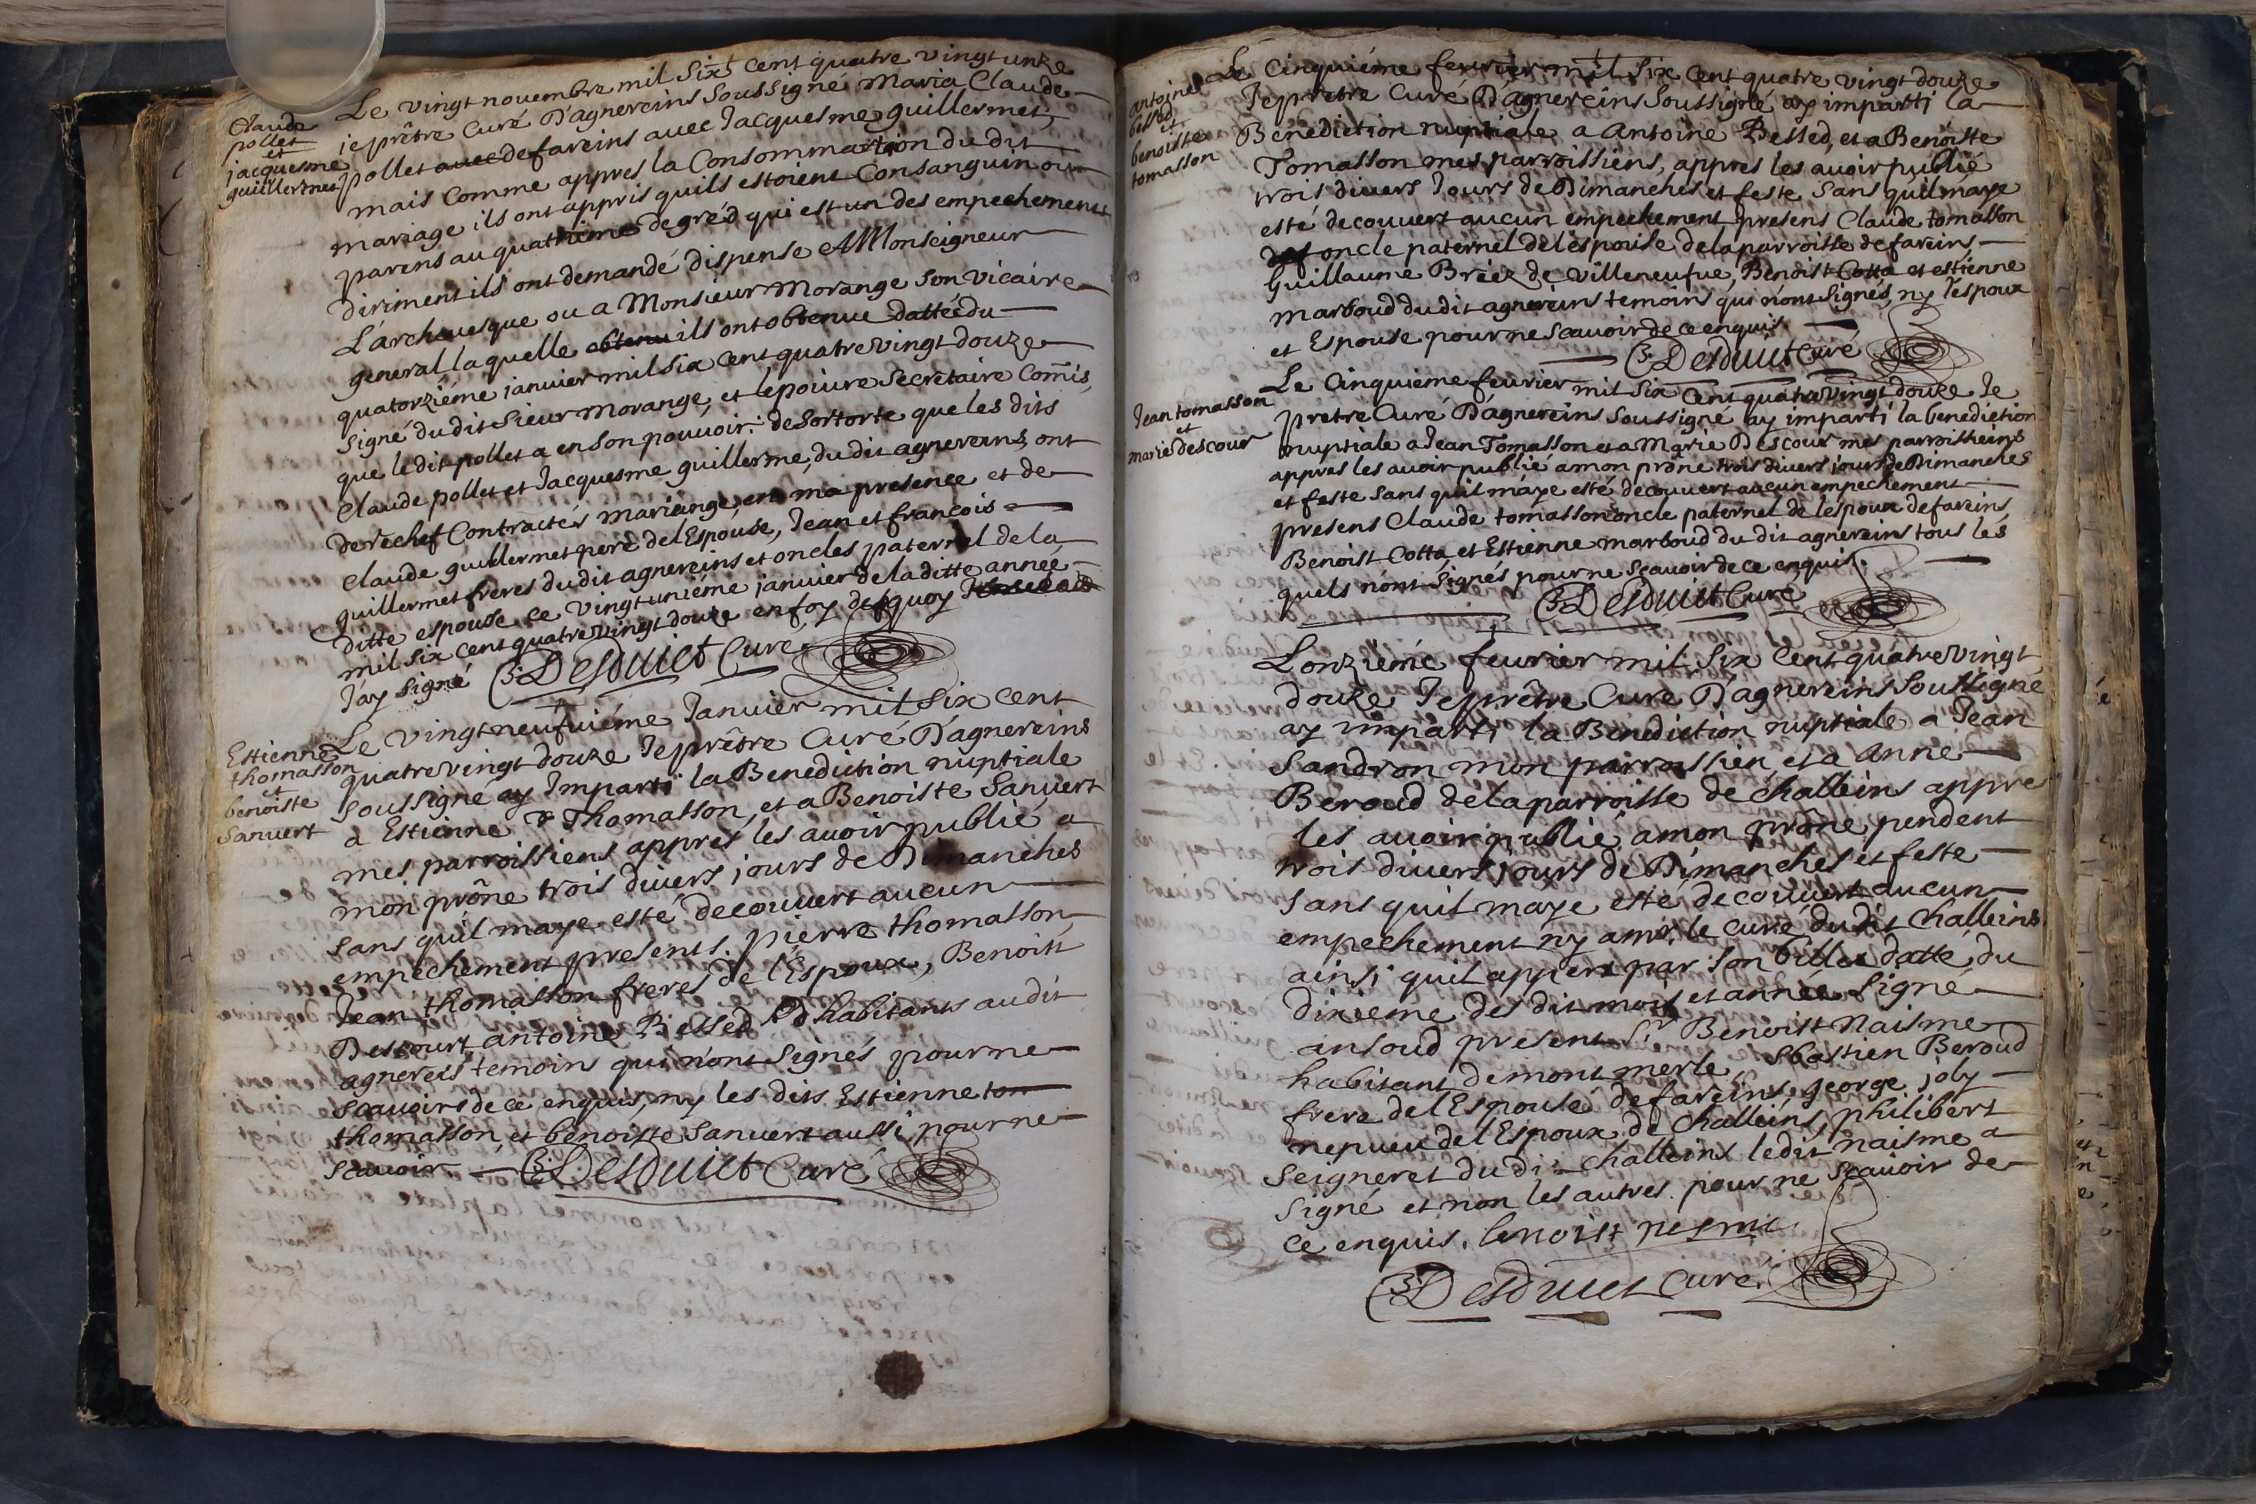 Claude
pollet
et
jacquesme
guillermet
Le vingt novembre mil six cent quatre vingt unze
je prêtre Curé D'agnereins Soussigné Maria Claude
pollet avec de fareins avec Jacquesme guillermet,
mais comme appres la Consommation du dit
mariage ils ont appris quils estoient Consanguin ou
parens au quatriéme degréd qui est un des empechements
diriment ils ont demandé dispense A Monseigneur
L'archevesque ou a Monsieur Morange Son vicaire
general, laquelle obtenu ils ont obtenue dattée du
quatorziéme janvier mil six cent quatre vingt douze
Signé du dit Sieur Morange, et lepoivre Secretaire Com̃is,
que le dit pollet a en son pouvoir. de sortorte que les dits
Claude pollet et Jacquesme guillerme, du dit agnereins, ont
derechef Contractés mariange, en ma presence et de
Claude guillermet pere de l'Espouse, Jean et francois
guillermet freres du dit agnereins et oncles paternel de la
ditte espouse ce vingt uniéme janvier de la ditte année
mil six cent quatre vingt douze en foy desquoy
J'ay signé C. Desduict Curé
Estienne
thomasson
et
benoiste
Sanvert
Le vingt neufviéme Janvier mil six cent
quatre vingt douze Je prêtre Curé D'agnereins
soussigne ay Imparti la Benediction nuptiale
a Estienne Thomasson, et a Benoiste Sanvert
mes parroissiens appres les avoir publié a
mon prône trois divers jours de Dimanches
sans quil maye esté decouvert aucun
empechement presents. pierre thomasson,
Jean thomasson freres de l'Espoux, Benoist
Descourt antoine Bessed habitants audit
agnereis temoins qui n'ont signés pour ne
scavoir de ce enquis, ny les dits Estienne tom
thomasson, et benoiste Sanvert aussi pour ne
scavoir C. Desduict Curé
antoine
bessed
et
benoiste
tomasson
Le Cinquiéme fevrier mil six Cent quatre vingt douze
Je prêtre Curé D'agnereins Soussigné ay imparti la
Benediction nuptiale a Antoine Bessed, et a Benoiste
Tomasson mes parroissiens, appres les avoir publié
trois divers Jours de Dimanches et feste Sans quil maye
esté decouvert aucun empechement, presens Claude tomasson
oncle paternel de l'espouse de la parroisse de fareins
Guillaume Briez de Villeneufve, Benoist Cotta et estienne
marboud du dit agnereins temoins qui n'ont signés, ny l'espoux
et Espouse pour ne scavoir de ce enquis.
C. Desduict Curé
Jean tomasson
et
marie descour
Le Cinquiéme fevrier mil six Cent quatre vingt douze Je
prêtre Curé D'agnereins Soussigné ay imparti la benediction
nuptiale a Jean Tomasson et a Marie Descour mes parroissiens
appres les avoir publié a mon prône trois divers jours de Dimanches
et feste sans quil maye esté decouvert aucun empechement
presens Claude tomasson oncle paternel de lespoux de fareins,
Benoist Cotta, et Estienne marboud du dit agnereins tous les
quels n'ont signés pour ne scavoir de ce enquis.
C. Desduict Curé
L'onziéme fevrier mil six Cent quatre vingt
douze Je prêtre Curé D'agnereins Soussigné
ay imparti la Benediction nuptiale a Jean
Sandron mon parroissien, et a anne
Beroud de la parroisse de Challeins appre
les avoir publié a mon prône pendent
trois divers jours de Dimanches et feste
sans quil maye esté decouvert aucun
empechement ny a mr. le curé du dit Challeins
ainsi quil appert par son billet datté du
dixieme des dit mois et année signé
ansoud present Sr. Benoist Naisme
habitant de mont merle, Sbastien Beroud
frere de l'Espouse de fareins, george joly
nepveu de l'Espoux de Challeins, philibert
Seigneret du dit Challeins le dit naisme a
signé et non les autres pour ne scavoir de
ce enquis. benoist nesme
C. Desduict Curé.